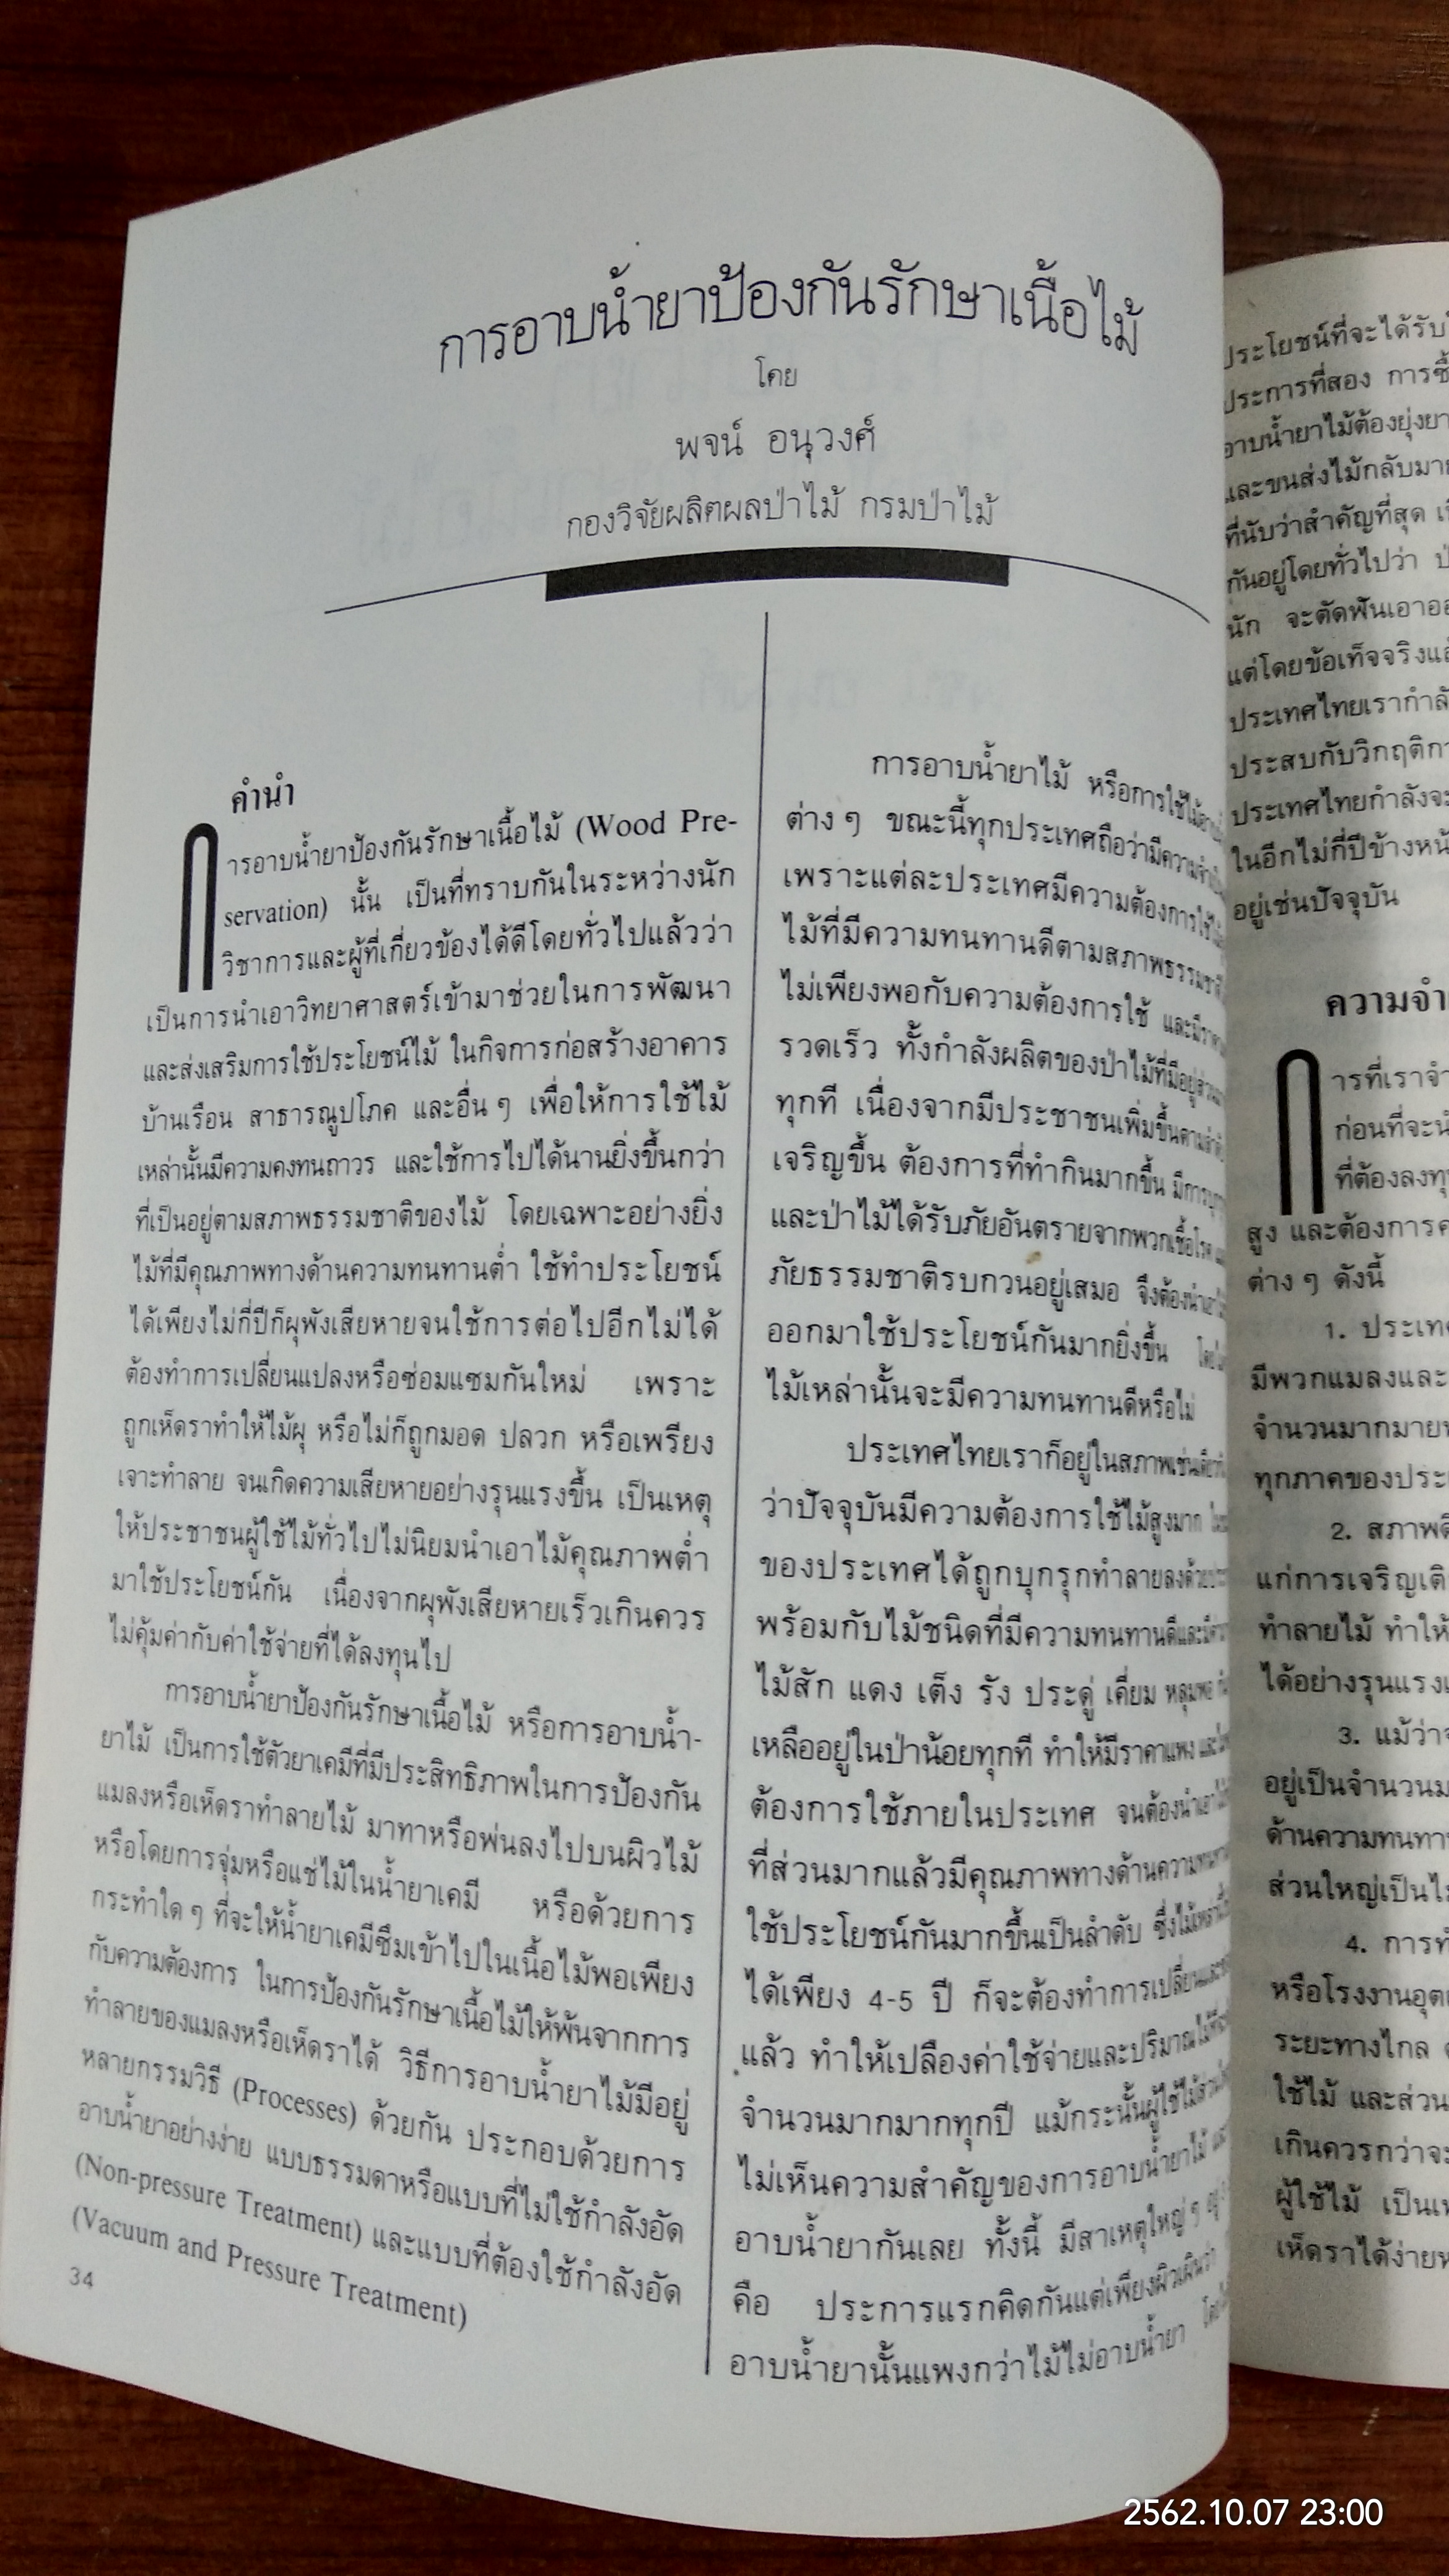 การอาบน้ำยาป้องกันรักษาเนื้อไม้
โดย
พจน์ อนุวงศ์
กองวิจัยผลิตผลป่าไม้ กรมป่าไม้
คำนำ
การอาบน้ำยาป้องกันรักษาเนื้อไม้ (Wood Pre-
servation) นั้น เป็นที่ทราบกันในระหว่างนัก
วิชาการและผู้ที่เกี่ยวข้องได้ดีโดยทั่วไปแล้วว่า
เป็นการนำเอาวิทยาศาสตร์เข้ามาช่วยในการพัฒนา
และส่งเสริมการใช้ประโยชน์ไม้ ในกิจการก่อสร้างอาคาร
บ้านเรือน สาธารณูปโภค และอื่น ๆ เพื่อให้การใช้ไม้
เหล่านั้นมีความคงทนถาวร และใช้การไปได้นานยิ่งขึ้นกว่า
ที่เป็นอยู่ตามสภาพธรรมชาติของไม้ โดยเฉพาะอย่างยิ่ง
ไม้ที่มีคุณภาพทางด้านความทนทานต่ำ ใช้ทำประโยชน์
ได้เพียงไม่กี่ปีก็ผุพังเสียหายจนใช้การต่อไปอีกไม่ได้
ต้องทำการเปลี่ยนแปลงหรือซ่อมแซมกันใหม่ เพราะ
ถูกเห็ดราทำให้ไม้ผุ หรือไม่ก็ถูกมอด ปลวก หรือเพรียง
เจาะทำลาย จนเกิดความเสียหายอย่างรุนแรงขึ้น เป็นเหตุ
ให้ประชาชนผู้ใช้ไม้ทั่วไปไม่นิยมนำเอาไม้คุณภาพต่ำ
มาใช้ประโยชน์กัน เนื่องจากผุพังเสียหายเร็วเกินควร
ไม่คุ้มค่ากับค่าใช้จ่ายที่ได้ลงทุนไป
การอาบน้ำยาป้องกันรักษาเนื้อไม้ หรือการอาบน้ำ-
ยาไม้ เป็นการใช้ตัวยาเคมีที่มีประสิทธิภาพในการป้องกัน
แมลงหรือเห็ดราทำลายไม้ มาทาหรือพ่นลงไปบนผิวไม้
หรือโดยการจุ่มหรือแช่ไม้ในน้ำยาเคมี หรือด้วยการ
กระทำใด ๆ ที่จะให้น้ำยาเคมีซึมเข้าไปในเนื้อไม้พอเพียง
กับความต้องการ ในการป้องกันรักษาเนื้อไม้ให้พ้นจากการ
ทำลายของแมลงหรือเห็ดราได้ วิธีการอาบน้ำยาไม้มีอยู่
หลายกรรมวิธี (Processes) ด้วยกัน ประกอบด้วยการ
อาบน้ำยาอย่างง่าย แบบธรรมดาหรือแบบที่ไม่ใช้กำลังอัด
(Non-pressure Treatment) และแบบที่ต้องใช้กำลังอัด
(Vacuum and Pressure Treatment)
34
การอาบน้ำยาไม้ หรือการใช้ไม้
ต่าง ๆ ขณะนี้ทุกประเทศถือว่ามีความ
เพราะแต่ละประเทศมีความต้องการใช้
ไม้ที่มีความทนทานดีตามสภาพธรรมชาติ
ไม่เพียงพอกับความต้องการใช้ และมี
รวดเร็ว ทั้งกำลังผลิตของป่าไม้ที่มีอยู่
ทุกที เนื่องจากมีประชาชนเพิ่มขึ้น
เจริญขึ้น ต้องการที่ทำกินมากขึ้น
และป่าไม้ได้รับภัยอันตรายจากพวกเชื้อโรค
ภัยธรรมชาติรบกวนอยู่เสมอ จึงต้อง
ออกมาใช้ประโยชน์กันมากยิ่งขึ้น
ไม้เหล่านั้นจะมีความทนทานดีหรือไม่
ประเทศไทยเราก็อยู่ในสภาพเช่น
ว่าปัจจุบันมีความต้องการใช้ไม้สูงมาก
ของประเทศได้ถูกบุกรุกทำลายลงด้วย
พร้อมกับไม้ชนิดที่มีความทนทานดี
ไม้สัก แดง เต็ง รัง ประดู่ เคี่ยม หลุมพอ
เหลืออยู่ในป่าน้อยทุกที ทำให้มีราคาแพง
ต้องการใช้ภายในประเทศ จนต้องนำเอา
ที่ส่วนมากแล้วมีคุณภาพทางด้านความ
ใช้ประโยชน์กันมากขึ้นเป็นลำดับ ซึ่งไม้
ได้เพียง 4-5 ปี ก็จะต้องทำการเปลี่ยน
แล้ว ทำให้เปลืองค่าใช้จ่ายและปริมาณไม้
จำนวนมากมากทุกปี แม้กระนั้นผู้ใช้ไม้
ไม่เห็นความสำคัญของการอาบน้ำยาไม้
อาบน้ำยากันเลย ทั้งนี้ มีสาเหตุใหญ่ ๆ
คือ ประการแรกคิดกันแต่เพียงผิวเผินว่า
อาบน้ำยานั้นแพงกว่าไม้ไม่อาบน้ำยา
ประโยชน์ที่จะได้รับ
ประการที่สอง การซื้
อาบน้ำยาไม้ต้องยุ่งยา
และขนส่งไม้กลับมา
ที่นับว่าสำคัญที่สุด
กันอยู่โดยทั่วไปว่า
นัก จะตัดฟันเอาออ
แต่โดยข้อเท็จจริงแล้
ประเทศไทยเรากำลั
ประสบกับวิกฤติกา
ประเทศไทยกำลังจะ
ในอีกไม่กี่ปีข้างหน้
อยู่เช่นปัจจุบัน
ความจำ
การที่เราจำ
ก่อนที่จะนำ
ที่ต้องลงทุ
สูง และต้องการ
ต่าง ๆ ดังนี้
1. ประเท
มีพวกแมลงและ
จำนวนมากมาย
ทุกภาคของประ
2. สภาพ
แก่การเจริญเติ
ทำลายไม้ ทำให้
ได้อย่างรุนแรง
3. แม้ว่า
อยู่เป็นจำนวนม
ด้านความทนทา
ส่วนใหญ่เป็นไ
4. การ
หรือโรงงานอุต
ระยะทางไกล
ใช้ไม้ และส่วน
เกินควรกว่าจะ
ผู้ใช้ไม้ เป็น
เห็ดราได้ง่าย
2562.10.07 23:00